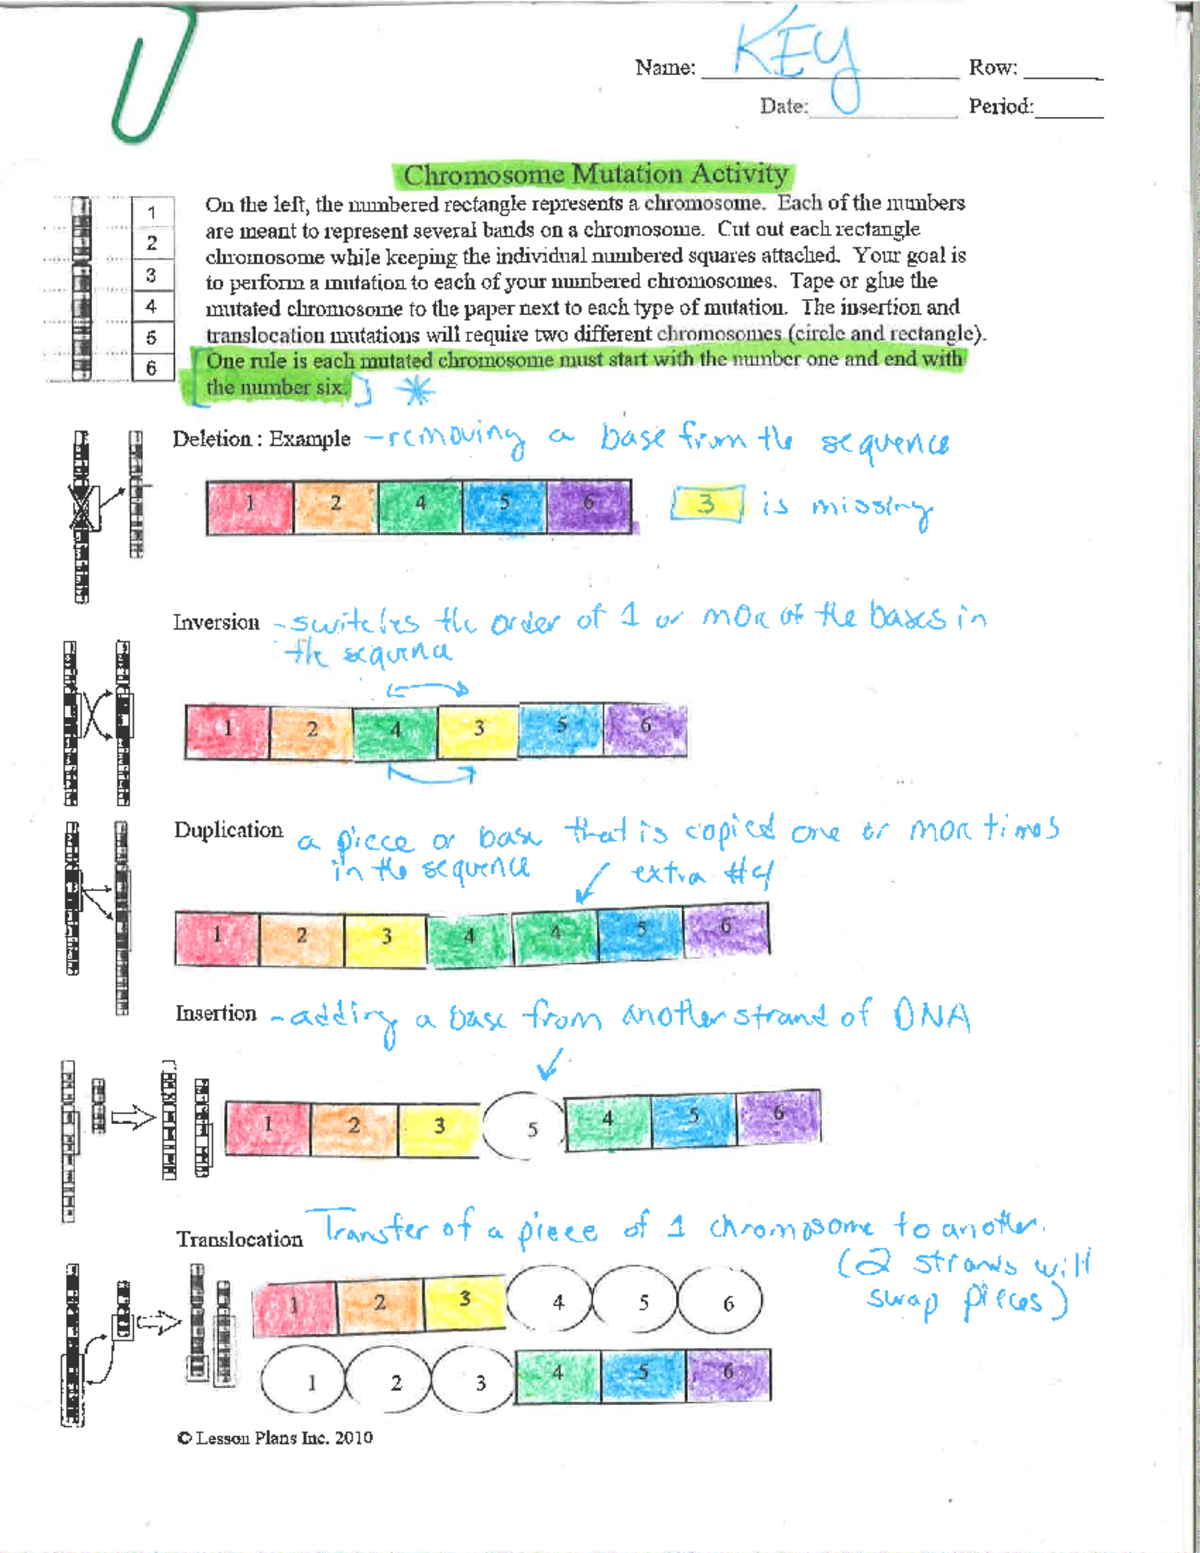 Name: KEY Row:
Date: Period:
Chromosome Mutation Activity
On the left, the numbered rectangle represents a chromosome. Each of the numbers
are meant to represent several bands on a chromosome. Cut out each rectangle
chromosome while keeping the individual numbered squares attached. Your goal is
to perform a mutation to each of your numbered chromosomes. Tape or glue the
mutated chromosome to the paper next to each type of mutation. The insertion and
translocation mutations will require two different chromosomes (circle and rectangle).
[One rule is each mutated chromosome must start with the number one and end with
the number six.] *
1
2
3
4
5
6
Deletion : Example - removing a base from the sequence
1 2 4 5 6 3 is missing
Inversion - switches the order of 1 or more of the bases in
the sequence
1 2 4 3 5 6
Duplication a piece or base that is copied one or more times
in the sequence extra #4
1 2 3 4 4 5 6
Insertion - adding a base from another strand of DNA
1 2 3 5 4 5 6
Translocation Transfer of a piece of 1 chromosome to another.
(2 strands will
swap pieces)
1 2 3 4 5 6
1 2 3 4 5 6
© Lesson Plans Inc. 2010